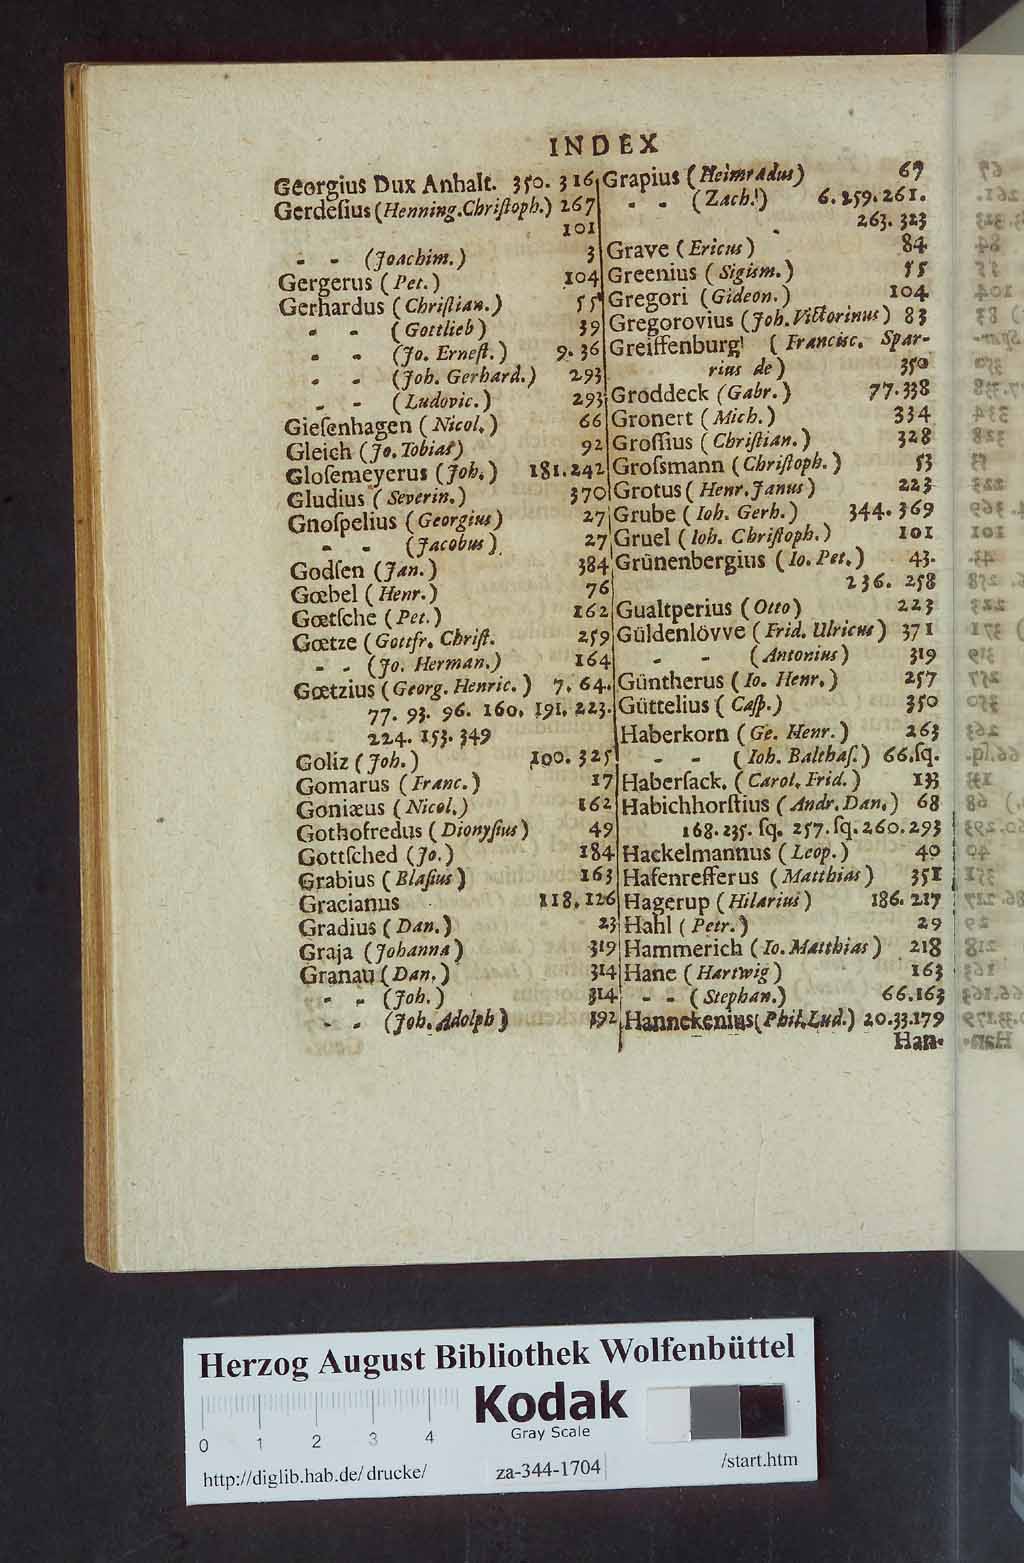 INDEX
Georgius Dux Anhalt. 350. 316
Gerdeſius (Henning. Chriſtoph.) 267
101
- - (Joachim.) 3
Gergerus (Pet.) 104
Gerhardus (Chriſtian.) 55
- - (Gottlieb) 39
- - (Jo. Erneſt.) 9. 36
- - (Joh. Gerhard.) 293
- - (Ludovic.) 293
Gieſenhagen (Nicol.) 66
Gleich (Jo. Tobias) 92
Gloſemeyerus (Joh.) 181. 242
Gludius (Severin.) 370
Gnoſpelius (Georgius) 27
- - (Jacobus) 27
Godſen (Jan.) 384
Gœbel (Henr.) 76
Gœtſche (Pet.) 162
Gœtze (Gottfr. Chriſt. 259
- - (Jo. Herman.) 164
Gœtzius (Georg. Henric.) 7. 64.
77. 93. 96. 160. 191. 223.
224. 153. 349
Goliz (Joh.) 100. 325
Gomarus (Franc.) 17
Goniæus (Nicol.) 162
Gothofredus (Dionyſius) 49
Gottſched (Jo.) 184
Grabius (Blaſius) 163
Gracianus 118. 126
Gradius (Dan.) 23
Graja (Johanna) 319
Granau (Dan.) 314
- - (Joh.) 314
- - (Joh. Adolph) 192
Grapius (Heimradus) 67
- - (Zach.) 6. 259. 261.
263. 323
Grave (Ericus) 84
Greenius (Sigism.) 55
Gregori (Gideon.) 104
Gregorovius (Joh. Victorinus) 83
Greiffenburg (Francisc. Spar-
rius de) 350
Groddeck (Gabr.) 77. 338
Gronert (Mich.) 334
Groſſius (Chriſtian.) 328
Groſsmann (Chriſtoph.) 53
Grotus (Henr. Janus) 223
Grube (Ioh. Gerh.) 344. 369
Gruel (Ioh. Chriſtoph.) 101
Grünenbergius (Io. Pet.) 43.
236. 258
Gualtperius (Otto) 223
Güldenlövve (Frid. Ulricus) 371
- - (Antonius) 319
Güntherus (Io. Henr.) 257
Güttelius (Caſp.) 350
Haberkorn (Ge. Henr.) 263
- - (Ioh. Balthaſ.) 66. ſq.
Haberſack. (Carol. Frid.) 133
Habichhorſtius (Andr. Dan.) 68
168. 235. ſq. 257. ſq. 260. 293
Hackelmannus (Leop.) 40
Hafenrefferus (Matthias) 351
Hagerup (Hilarius) 186. 217
Hahl (Petr.) 29
Hammerich (Io. Matthias) 218
Hane (Hartwig) 163
- - (Stephan.) 66. 163
Hannekenius (Phil. Lud.) 20. 33. 179
Han-
Herzog August Bibliothek Wolfenbüttel
Kodak
Gray Scale
0 1 2 3 4
http://diglib.hab.de/drucke/ za-344-1704 /start.htm